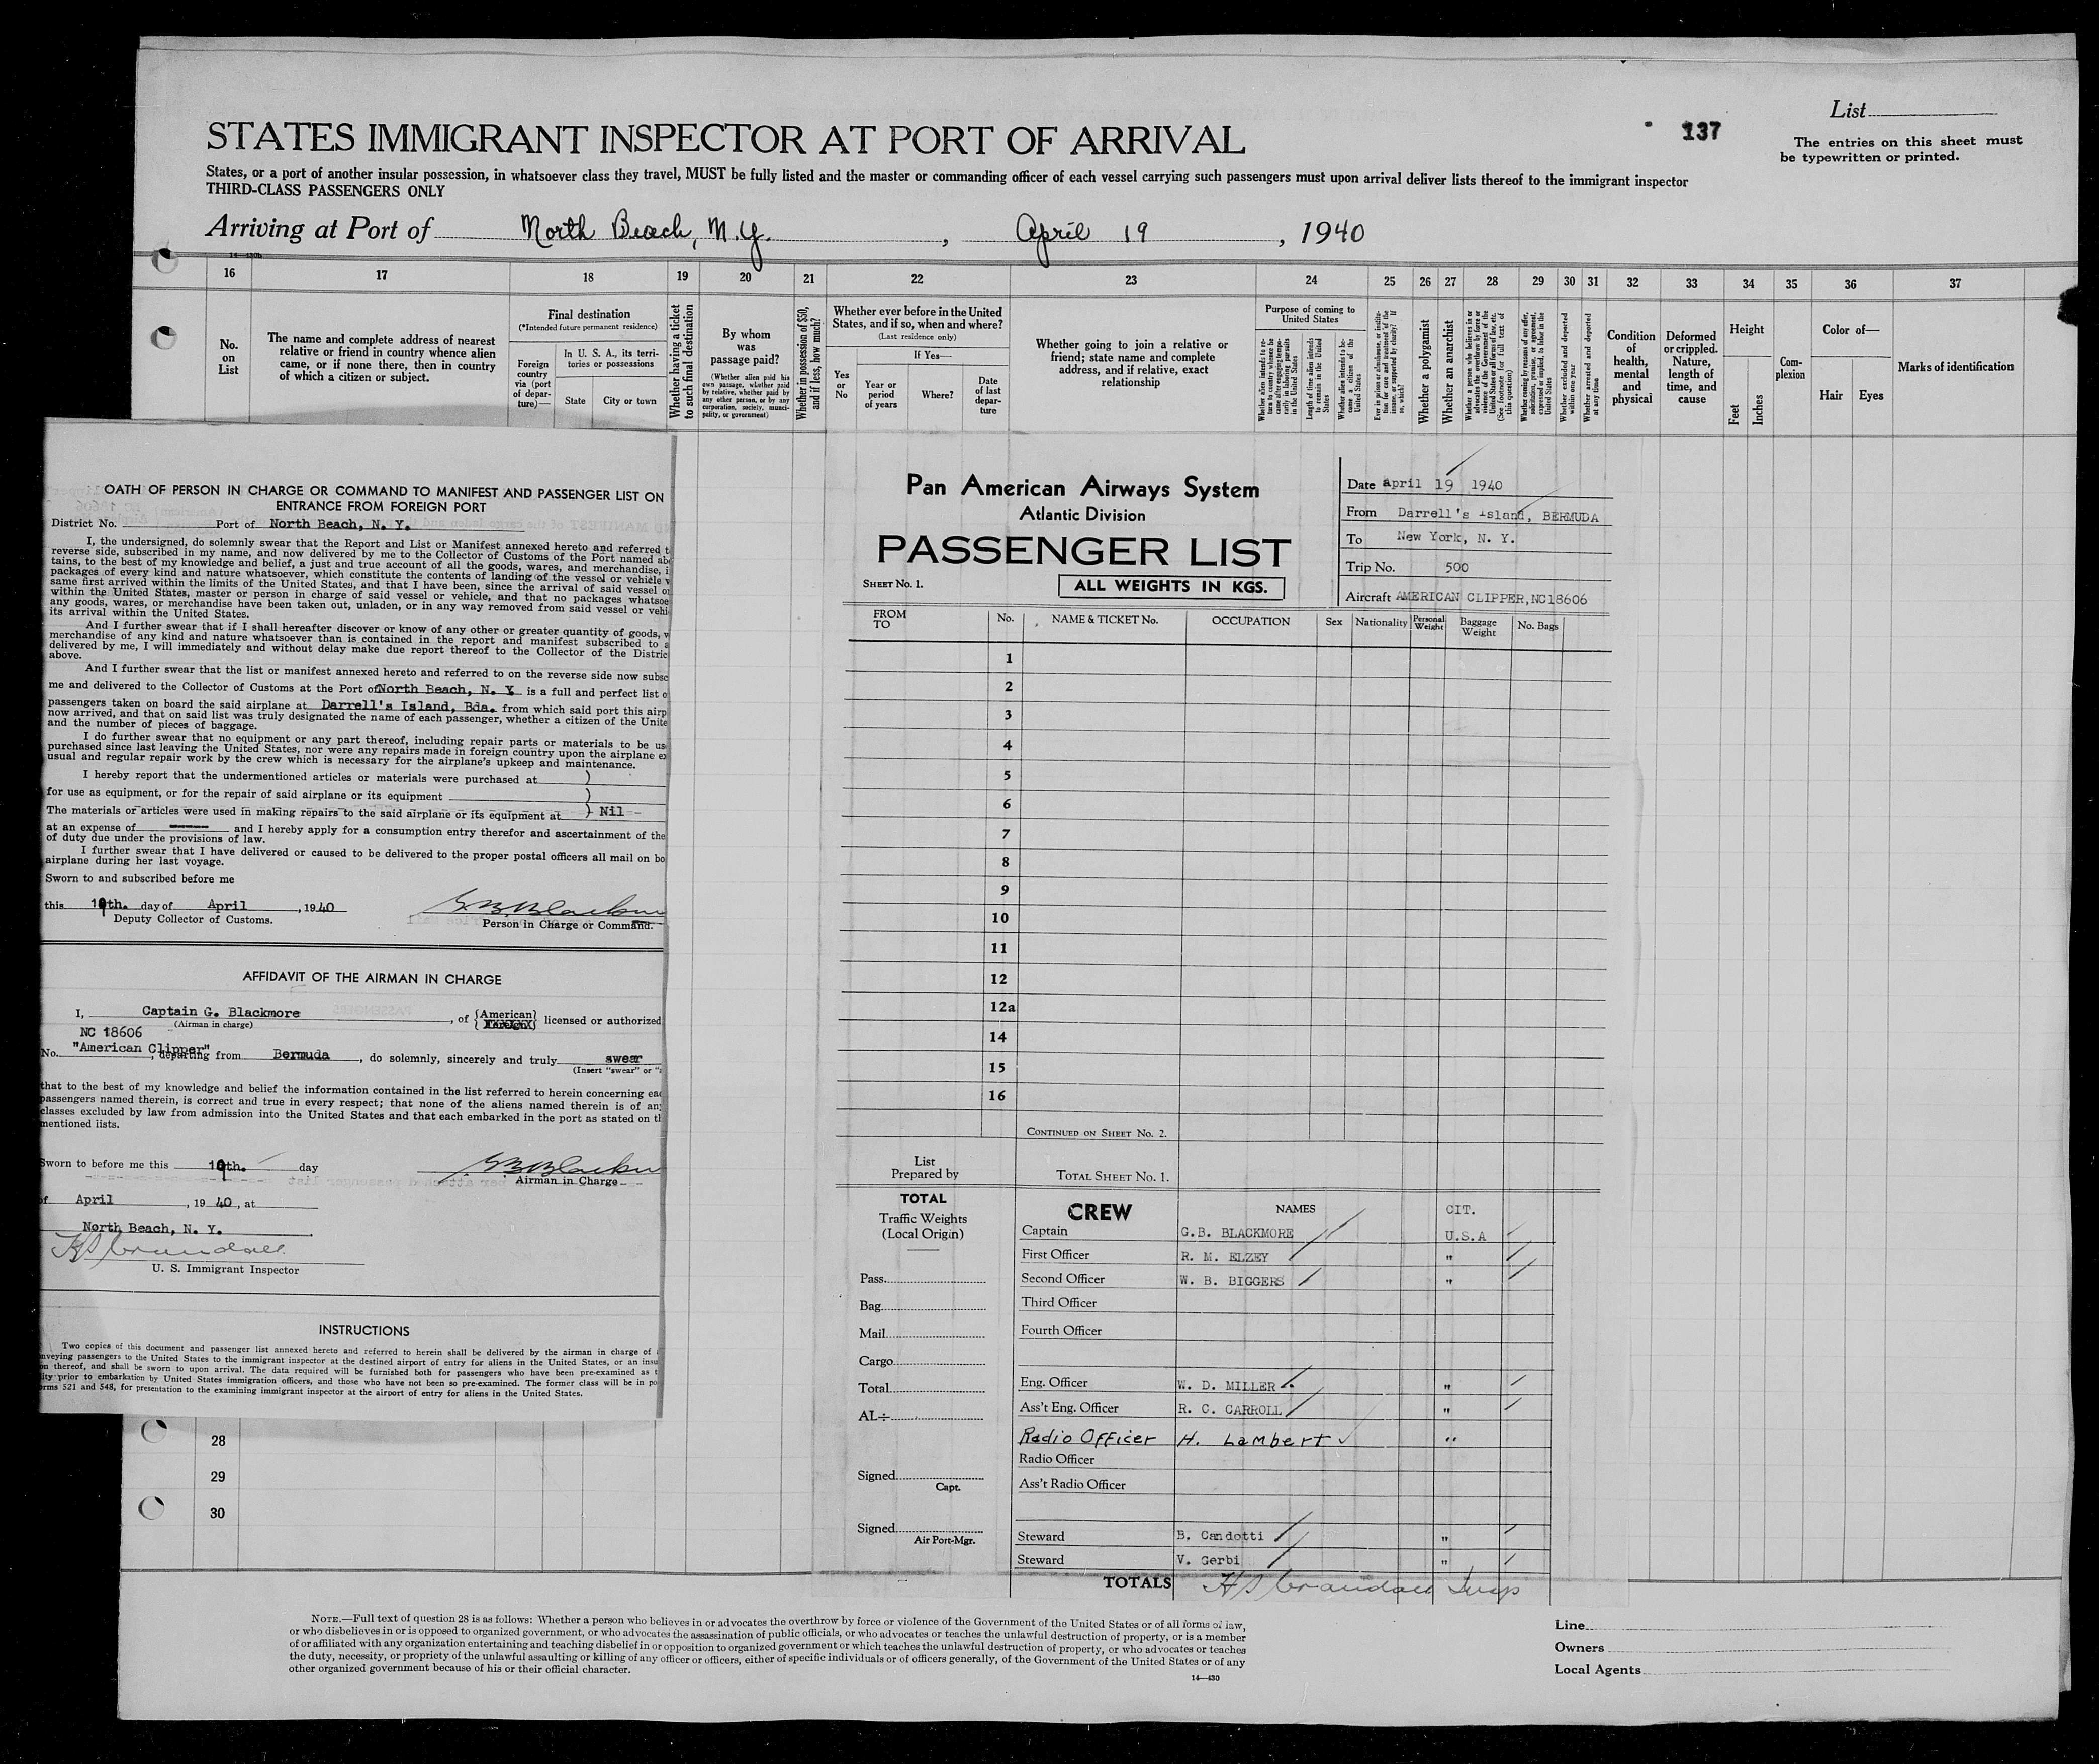 List
137
The entries on this sheet must
be typewritten or printed.
STATES IMMIGRANT INSPECTOR AT PORT OF ARRIVAL
States, or a port of another insular possession, in whatsoever class they travel, MUST be fully listed and the master or commanding officer of each vessel carrying such passengers must upon arrival deliver lists thereof to the immigrant inspector
THIRD-CLASS PASSENGERS ONLY
Arriving at Port of North Beach, N.Y. , April 19 , 1940
16 17 18 19 20 21 22 23 24 25 26 27 28 29 30 31 32 33 34 35 36 37
No.
on
List
The name and complete address of nearest
relative or friend in country whence alien
came, or if none there, then in country
of which a citizen or subject.
Final destination
(*Intended future permanent residence)
Foreign
country
via (port
of depar-
ture)—
In U. S. A., its terri-
tories or possessions
State City or town
Whether having a ticket
to such final destination
By whom
was
passage paid?
(Whether alien paid his
own passage, whether paid
by relative, whether paid by
any other person, or by any
corporation, society, munici-
pality, or government)
Whether in possession of $50,
and if less, how much?
Whether ever before in the United
States, and if so, when and where?
(Last residence only)
If Yes—
Yes
or
No
Year or
period
of years
Where?
Date
of last
depar-
ture
Whether going to join a relative or
friend; state name and complete
address, and if relative, exact
relationship
Purpose of coming to
United States
Length of time alien intends
to remain in the United
States
Whether a polygamist
Whether an anarchist
Whether excluded and deported
within one year
Whether arrested and deported
at any time
Condition
of
health,
mental
and
physical
Deformed
or crippled.
Nature,
length of
time, and
cause
Height
Feet
Inches
Com-
plexion
Color of—
Hair Eyes
Marks of identification
OATH OF PERSON IN CHARGE OR COMMAND TO MANIFEST AND PASSENGER LIST ON
ENTRANCE FROM FOREIGN PORT
District No. Port of North Beach, N. Y.
I, the undersigned, do solemnly swear that the Report and List or Manifest annexed hereto and referred
reverse side, subscribed in my name, and now delivered by me to the Collector of Customs of the Port named
tains, to the best of my knowledge and belief, a just and true account of all the goods, wares, and merchandise,
packages of every kind and nature whatsoever, which constitute the contents of landing of the vessel or vehicle
same first arrived within the limits of the United States, and that I have been, since the arrival of said vessel
within the United States, master or person in charge of said vessel or vehicle, and that no packages
any goods, wares, or merchandise have been taken out, unladen, or in any way removed from said vessel or
its arrival within the United States.
And I further swear that if I shall hereafter discover or know of any other or greater quantity of goods,
merchandise of any kind and nature whatsoever than is contained in the report and manifest subscribed to
delivered by me, I will immediately and without delay make due report thereof to the Collector of the
above.
And I further swear that the list or manifest annexed hereto and referred to on the reverse side now
me and delivered to the Collector of Customs at the Port of North Beach, N. Y. is a full and perfect list
passengers taken on board the said airplane at Darrell's Island, Bda. from which said port this
now arrived, and that on said list was truly designated the name of each passenger, whether a citizen of the
and the number of pieces of baggage.
I do further swear that no equipment or any part thereof, including repair parts or materials to be
purchased since last leaving the United States, nor were any repairs made in foreign country upon the airplane
usual and regular repair work by the crew which is necessary for the airplane's upkeep and maintenance.
I hereby report that the undermentioned articles or materials were purchased at
for use as equipment, or for the repair of said airplane or its equipment
The materials or articles were used in making repairs to the said airplane or its equipment at - Nil -
at an expense of and I hereby apply for a consumption entry therefor and ascertainment of the
of duty due under the provisions of law.
I further swear that I have delivered or caused to be delivered to the proper postal officers all mail on
airplane during her last voyage.
Sworn to and subscribed before me
this 19th. day of April , 1940
Deputy Collector of Customs.
G.B.Blackmore
Person in Charge or Command.
AFFIDAVIT OF THE AIRMAN IN CHARGE
I, Captain G. Blackmore , of {American} licensed or authorized
(Airman in charge)
NC 18606
No. "American Clipper" , departing from Bermuda , do solemnly, sincerely and truly swear
(Insert "swear" or
that to the best of my knowledge and belief the information contained in the list referred to herein concerning
passengers named therein, is correct and true in every respect; that none of the aliens named therein is of
classes excluded by law from admission into the United States and that each embarked in the port as stated on
mentioned lists.
Sworn to before me this 19th. day
G.B.Blackmore
Airman in Charge
of April , 19 40 , at
North Beach, N. Y.
H S Crandall
U. S. Immigrant Inspector
INSTRUCTIONS
Two copies of this document and passenger list annexed hereto and referred to herein shall be delivered by the airman in charge of
nveying passengers to the United States to the immigrant inspector at the destined airport of entry for aliens in the United States, or an
on thereof, and shall be sworn to upon arrival. The data required will be furnished both for passengers who have been pre-examined as
lity prior to embarkation by United States immigration officers, and those who have not been so pre-examined. The former class will be in
orms 521 and 548, for presentation to the examining immigrant inspector at the airport of entry for aliens in the United States.
28
29
30
Pan American Airways System
Atlantic Division
PASSENGER LIST
SHEET NO. 1.
ALL WEIGHTS IN KGS.
Date April 19 1940
From Darrell's Island, BERMUDA
To New York, N. Y.
Trip No. 500
Aircraft AMERICAN CLIPPER, NC18606
FROM
TO
No. NAME & TICKET No. OCCUPATION Sex Nationality Personal Weight Baggage Weight No. Bags
1
2
3
4
5
6
7
8
9
10
11
12
12a
14
15
16
CONTINUED ON SHEET NO. 2.
List
Prepared by
TOTAL SHEET NO. 1.
TOTAL
Traffic Weights
(Local Origin)
Pass.
Bag.
Mail
Cargo
Total
AL÷
Signed
Capt.
Signed
Air Port-Mgr.
CREW NAMES CIT.
Captain G.B. BLACKMORE U.S.A
First Officer R. M. ELZEY "
Second Officer W. B. BIGGERS "
Third Officer
Fourth Officer
Eng. Officer W. D. MILLER "
Ass't Eng. Officer R. C. CARROLL "
Radio Officer H. Lambert "
Radio Officer
Ass't Radio Officer
Steward B. Candotti "
Steward V. Gerbi "
TOTALS H S Crandall Insp
NOTE.—Full text of question 28 is as follows: Whether a person who believes in or advocates the overthrow by force or violence of the Government of the United States or of all forms of law,
or who disbelieves in or is opposed to organized government, or who advocates the assassination of public officials, or who advocates or teaches the unlawful destruction of property, or is a member
of or affiliated with any organization entertaining and teaching disbelief in or opposition to organized government or which teaches the unlawful destruction of property, or who advocates or teaches
the duty, necessity, or propriety of the unlawful assaulting or killing of any officer or officers, either of specific individuals or of officers generally, of the Government of the United States or of any
other organized government because of his or their official character.
14—430
Line
Owners
Local Agents